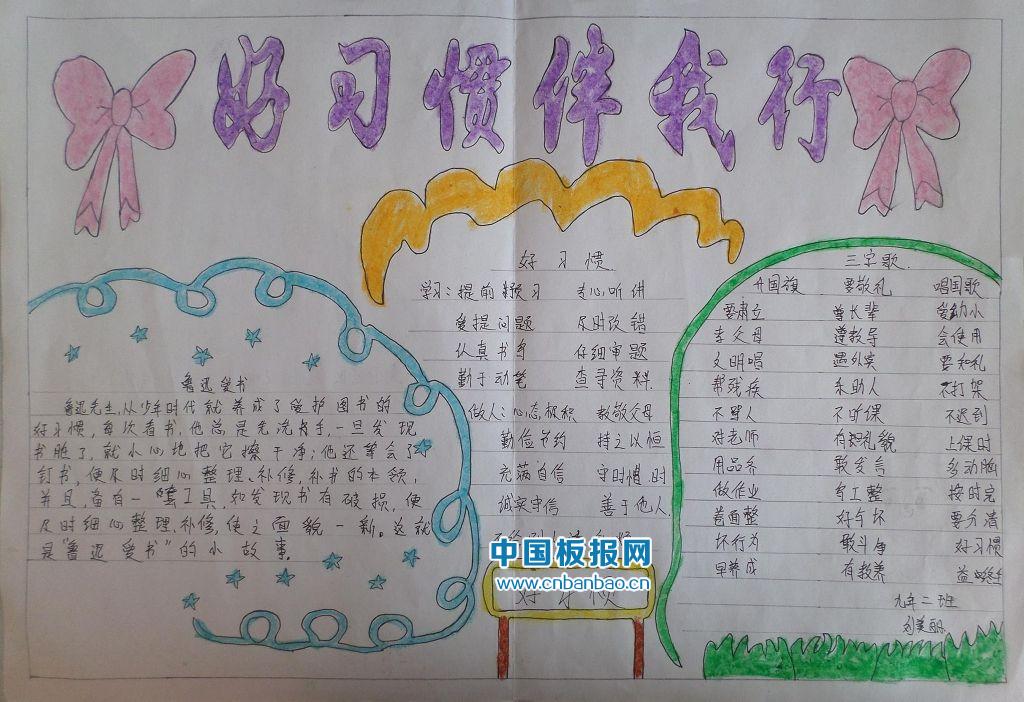 好习惯伴我行
鲁迅爱书
鲁迅先生,从少年时代就养成了爱护图书的
好习惯,每次看书,他总是先洗手,一旦发现
书脏了,就小心地把它擦干净;他还学会了
钉书,便及时细心整理、补修,补书的本领,
并且,备有一套工具,如发现书有破损,便
及时细心整理、补修,使之面貌一新。这就
是"鲁迅爱书"的小故事。
好习惯
学习:提前预习 专心听讲
爱提问题 及时改错
认真书写 仔细审题
勤于动笔 查寻资料
做人:心态极积 敬父母
勤俭节约 持之以恒
充满自信 守时惜时
诚实守信 善于他人
中国板报网
www.cnbanbao.net
好习惯
三字歌
升国旗 要敬礼 唱国歌
要肃立 尊长辈 爱幼小
孝父母 遵教导 会使用
文明唱 遇外宾 要知礼
帮残疾 乐助人 不打架
不骂人 不旷课 不迟到
对老师 有礼貌 上课时
用品齐 敢发言 多动脑
做作业 写工整 按时完
卷面整 好与坏 要分清
坏行为 敢斗争 好习惯
早养成 有教养 益终生
九年二班
刘美丽